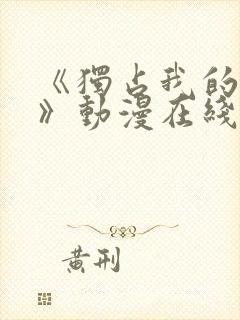 《獨占我的
》動漫在綫
黄刑